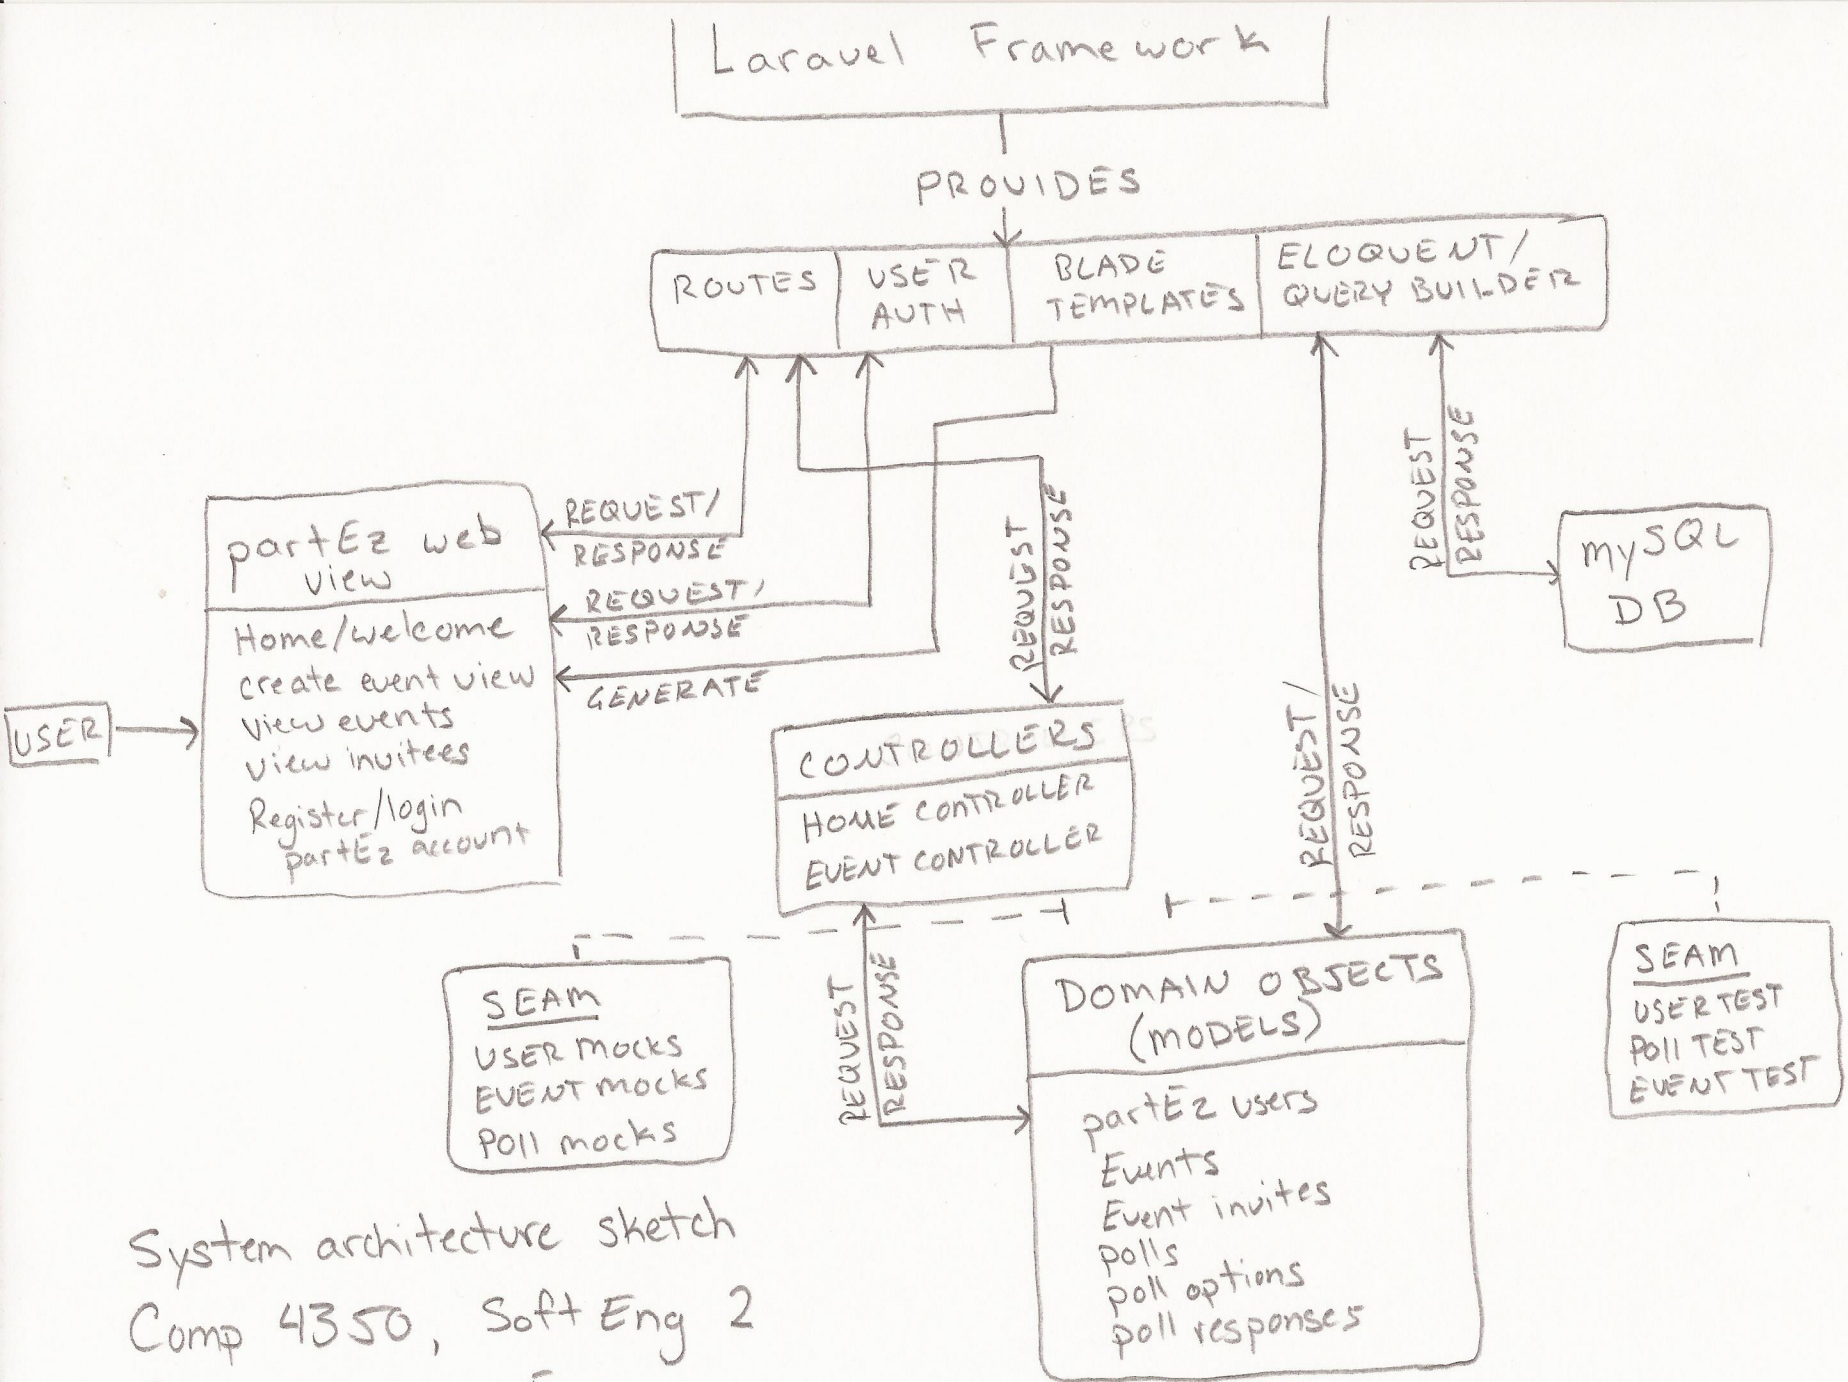 Laravel Framework
PROVIDES
ROUTES
USER
AUTH
BLADE
TEMPLATES
ELOQUENT/
QUERY BUILDER
REQUEST/
RESPONSE
REQUEST/
RESPONSE
GENERATE
REQUEST
RESPONSE
REQUEST/
RESPONSE
REQUEST
RESPONSE
mySQL
DB
partEz web
view
Home/welcome
create event view
view events
view invitees
Register/login
partEz account
USER
CONTROLLERS
HOME CONTROLLER
EVENT CONTROLLER
REQUEST
RESPONSE
SEAM
USER MOCKS
EVENT MOCKS
Poll mocks
DOMAIN OBJECTS
(MODELS)
partEz users
Events
Event invites
polls
poll options
poll responses
SEAM
USER TEST
Poll TEST
EVENT TEST
System architecture sketch
Comp 4350, Soft Eng 2